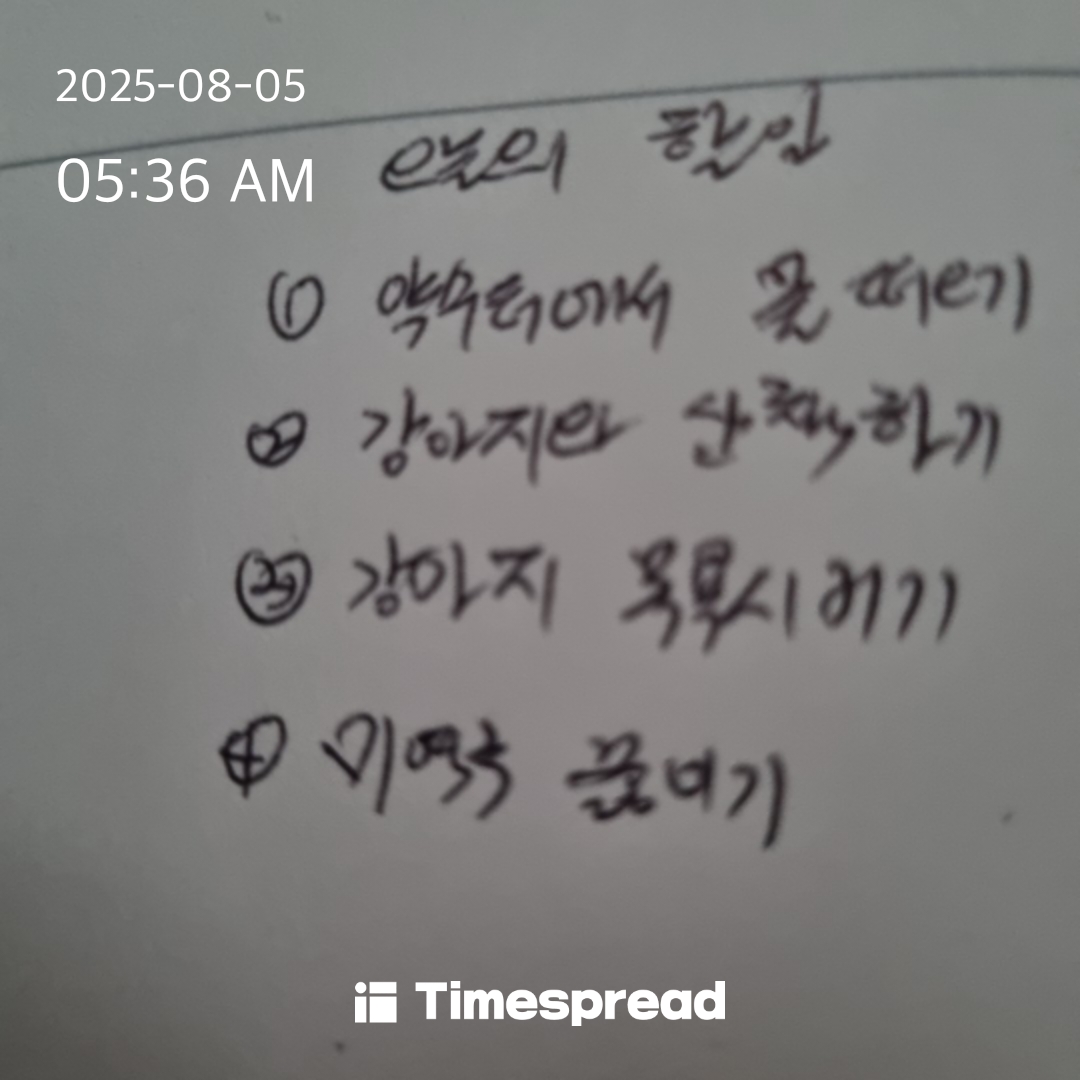 2025-08-05
05:36 AM
오늘의 할일
① 약수터에서 물 떠오기
② 강아지와 산책하기
③ 강아지 목욕시키기
④ 미역국 끓이기
Timespread